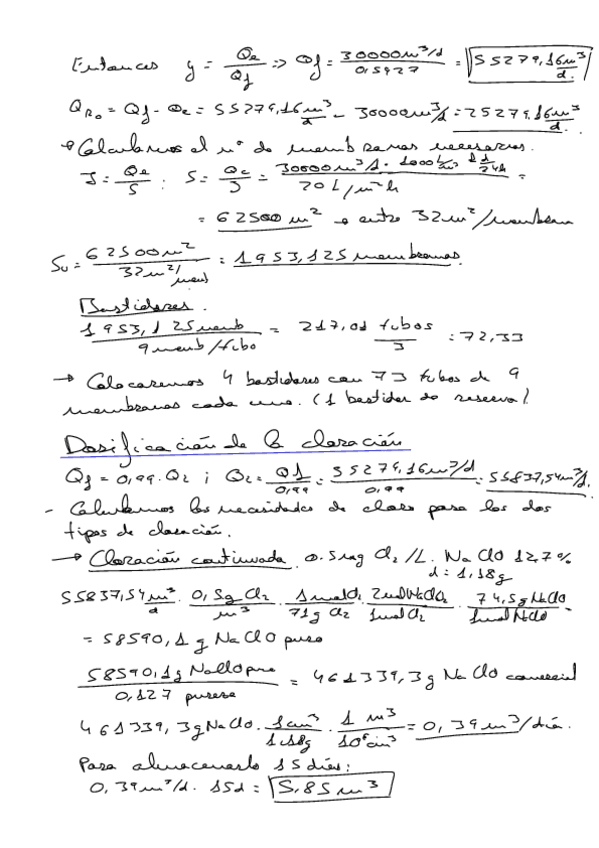 Entonces y = Qe/Qf => Qf = 30000m³/d / 0,5427 = 55279,16 m³/d.
QRo = Qf - Qe = 55279,16 m³/d - 30000m³/d = 25279,16 m³/d.
Calculamos el nº de membranas necesarias.
J = Qe/S ; S = Qe/J = 30000m³/d · 1000L/m³ · 1d/24h / 20 L/m²h =
= 62500 m² → entre 32m²/membrana
Su = 62500m² / 32m²/memb = 1953,125 membranas.
Bastidores.
1953,125memb / 9memb/tubo = 217,01 tubos / 3 = 72,33
→ Colocaremos 4 bastidores con 73 tubos de 9
membranas cada uno. (1 bastidor de reserva)
Dosificación de la cloración
Qf = 0,99 · Q2 ; Q2 = Qf/0,99 = 55279,16m³/d / 0,99 = 55837,54m³/d.
- Calculamos las necesidades de cloro para los dos
tipos de cloración.
→ Cloración continuada. 0.5mg Cl2/L. NaClO 12,7%
d = 1,18g
55837,54 m³/d · 0,5g Cl2/m³ · 1molCl2/71g Cl2 · 2molNaClO/1molCl2 · 74,5gNaClO/1molNaClO =
= 58590,1 g NaClO puro
58590,1g NaClO puro / 0,127 pureza = 461339,3g NaClO comercial
461339,3gNaClO · 1cm³/1.18g · 1 m³/10⁶cm³ = 0,39m³/día.
Para almacenarlo 15 días:
0,39m³/d · 15d = 5,85 m³